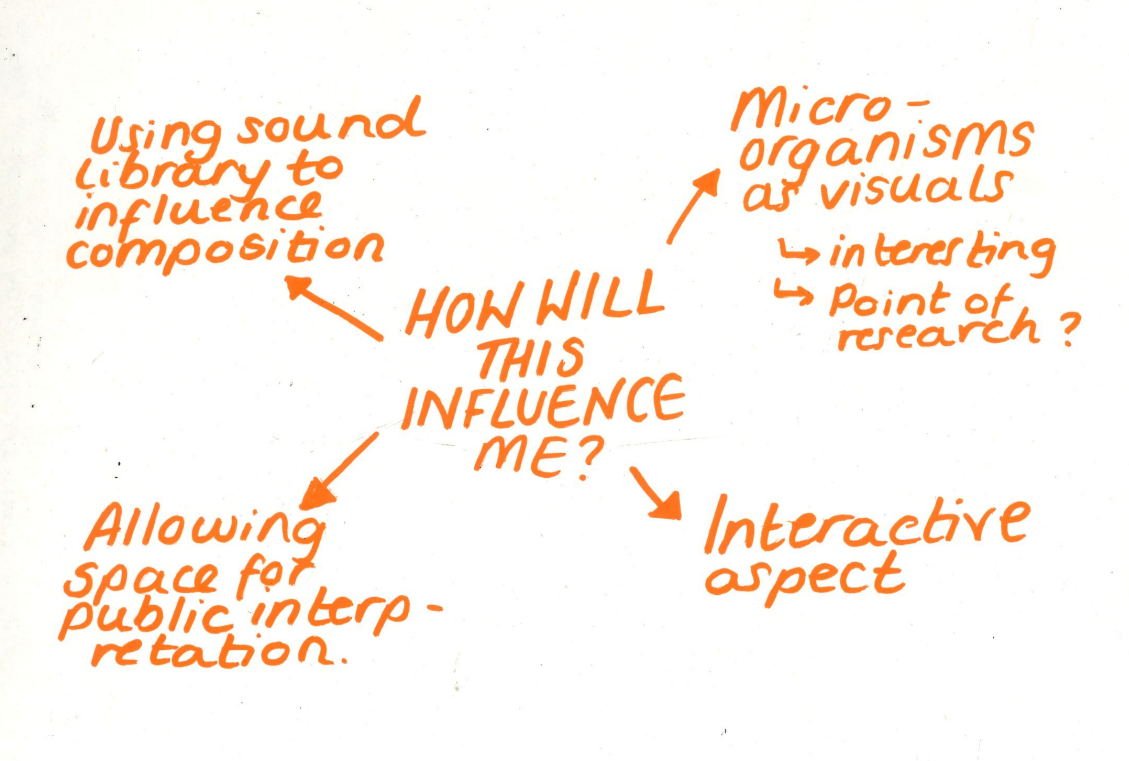 Using sound
library to
influence
composition
Micro-
organisms
as visuals
↳ interesting
↳ Point of
research ?
HOW WILL
THIS
INFLUENCE
ME?
Allowing
space for
public interp-
retation.
Interactive
aspect